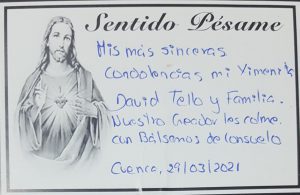 Sentido Pésame
Mis más sinceras
condolencias mi Yimenita
David Tello y Familia.
Nuestro Creador les colme
con Bálsamos de consuelo
Cuenca, 29/03/2021